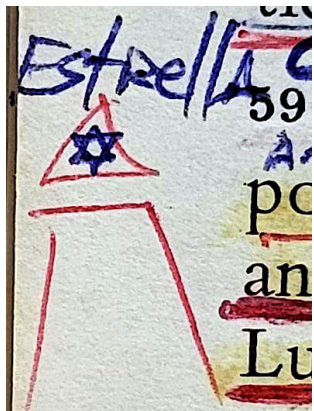 Estrella
59
po
an
Lu